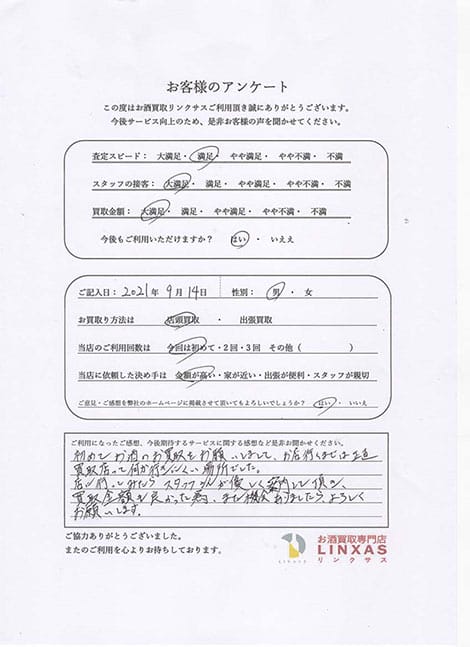 お客様のアンケート
この度はお酒買取リンクサスご利用頂き誠にありがとうございます。
今後サービス向上のため、是非お客様の声を聞かせてください。
査定スピード： 大満足・ 満足・ やや満足・ やや不満・ 不満
スタッフの接客： 大満足・ 満足・ やや満足・ やや不満・ 不満
買取金額： 大満足・ 満足・ やや満足・ やや不満・ 不満
今後もご利用いただけますか？ はい ・ いええ
ご記入日：2021年 9月 14日 性別： 男 ・ 女
お買取り方法は 店頭買取 ・ 出張買取
当店のご利用回数は 今回は初めて・2回・3回 その他（ ）
当店に依頼した決め手は 金額が高い・家が近い・出張が便利・スタッフが親切
ご意見・ご感想を弊社のホームページに掲載させて頂いてもよろしいでしょうか？ はい ・ いいえ
ご利用になったご感想、今後期待するサービスに関する感想など是非お聞かせください。
初めてお酒のお買取をお願いしまして、お店行くまでは正直
買取店って何か行きにくい場所でした。
店に行ってみたらスタッフさんが優しく案内して頂き、
買取金額も良かった為、また機会ありましたらよろしく
お願いします。
ご協力ありがとうございました。
またのご利用を心よりお待ちしております。
LINXAS
お酒買取専門店
LINXAS
リンクサス